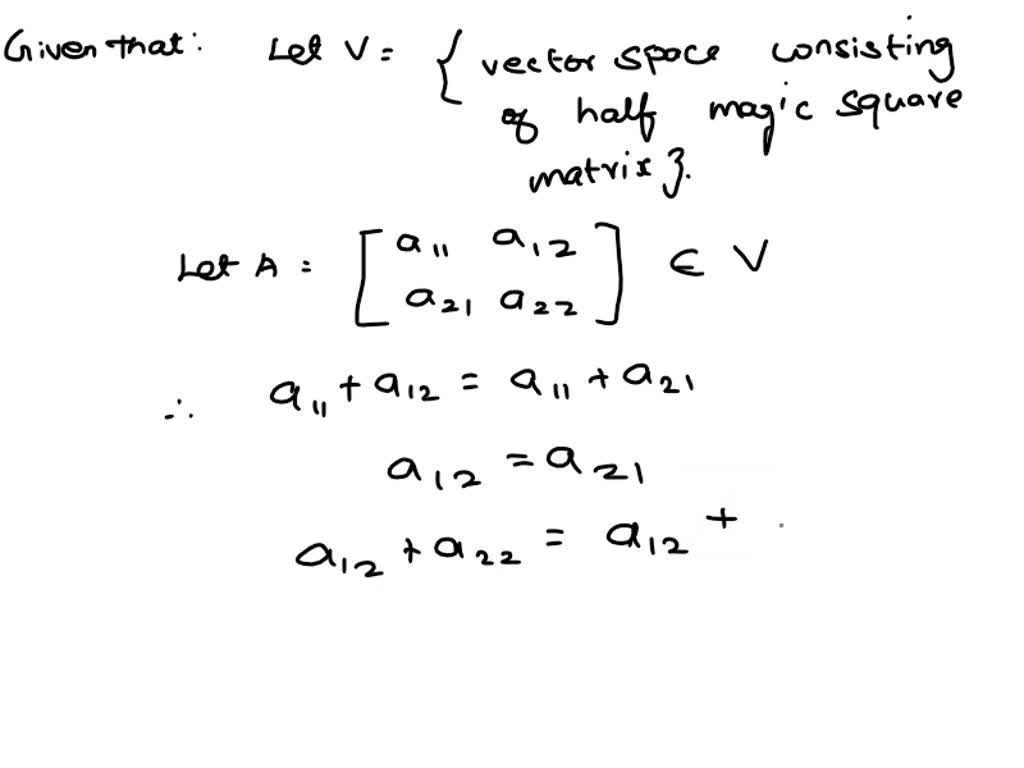 Given that: Let V = { vector space consisting
of half magic square
matrix }.
Let A = [ a11 a12
a21 a22 ] ∈ V
∴ a11 + a12 = a11 + a21
a12 = a21
a12 + a22 = a12 +